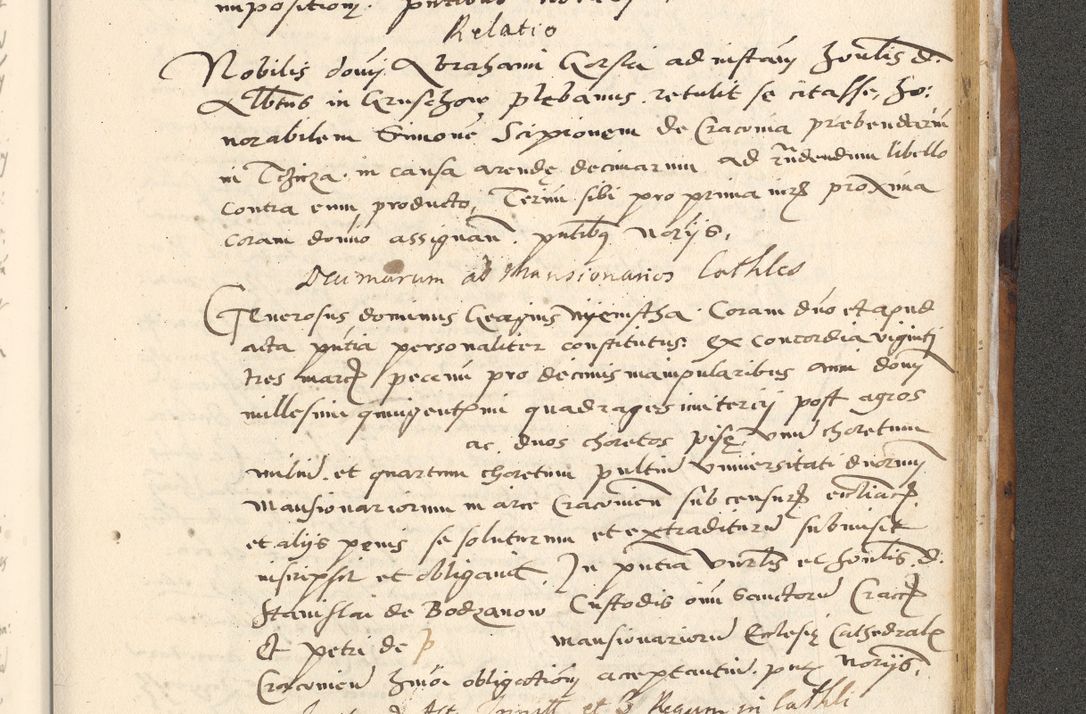 impositionis. pntibus
Relatio
Nobilis domini Abrahami Gorski ad instam honblis d.
Albtus in Gruschow plebanus. retulit se citasse, ho:
norabilem Simone Scipionem de Cracovia prebendariu
in Tczicza. in causa arende decimarum ad rndendum libello
contra eum producto, Termi sibi pro prima iur proxima
coram domio assignan. pntibus noriis.
Decimarum ad Mansionarios Cathles
Generosus dominus Georgius Nyemstha. Coram dno et apud
acta pntia personaliter constitutus: ex concordia viginti
tres marcs pecunii pro decimis manipularibus anni domi
millesimi quingentesimi quadragesimi tercii post agros
ac duos choretos pise unu choretum
milii. et quartum choretum pultiu Universitati dnorum
Mansionariorum in arce Cracovien sub censuris eccliacis
et aliis penis se soluturum et extraditurum submisit
inscripsit et obligavit. In pntia venrblis et honblis. d.
Stanislai de Bodzanow Custodis oim Sanctoru Cracs
Et petri de p mansionarioru Ecclesie Cathedralis
Cracovien hmoi obligationi acceptantiu. pntibus noriis.
et 3 Regum in Cathli